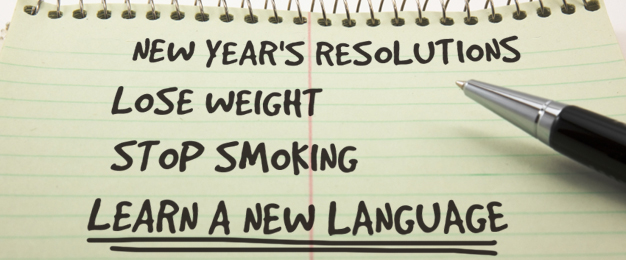 NEW YEAR'S RESOLUTIONS
LOSE WEIGHT
STOP SMOKING
LEARN A NEW LANGUAGE